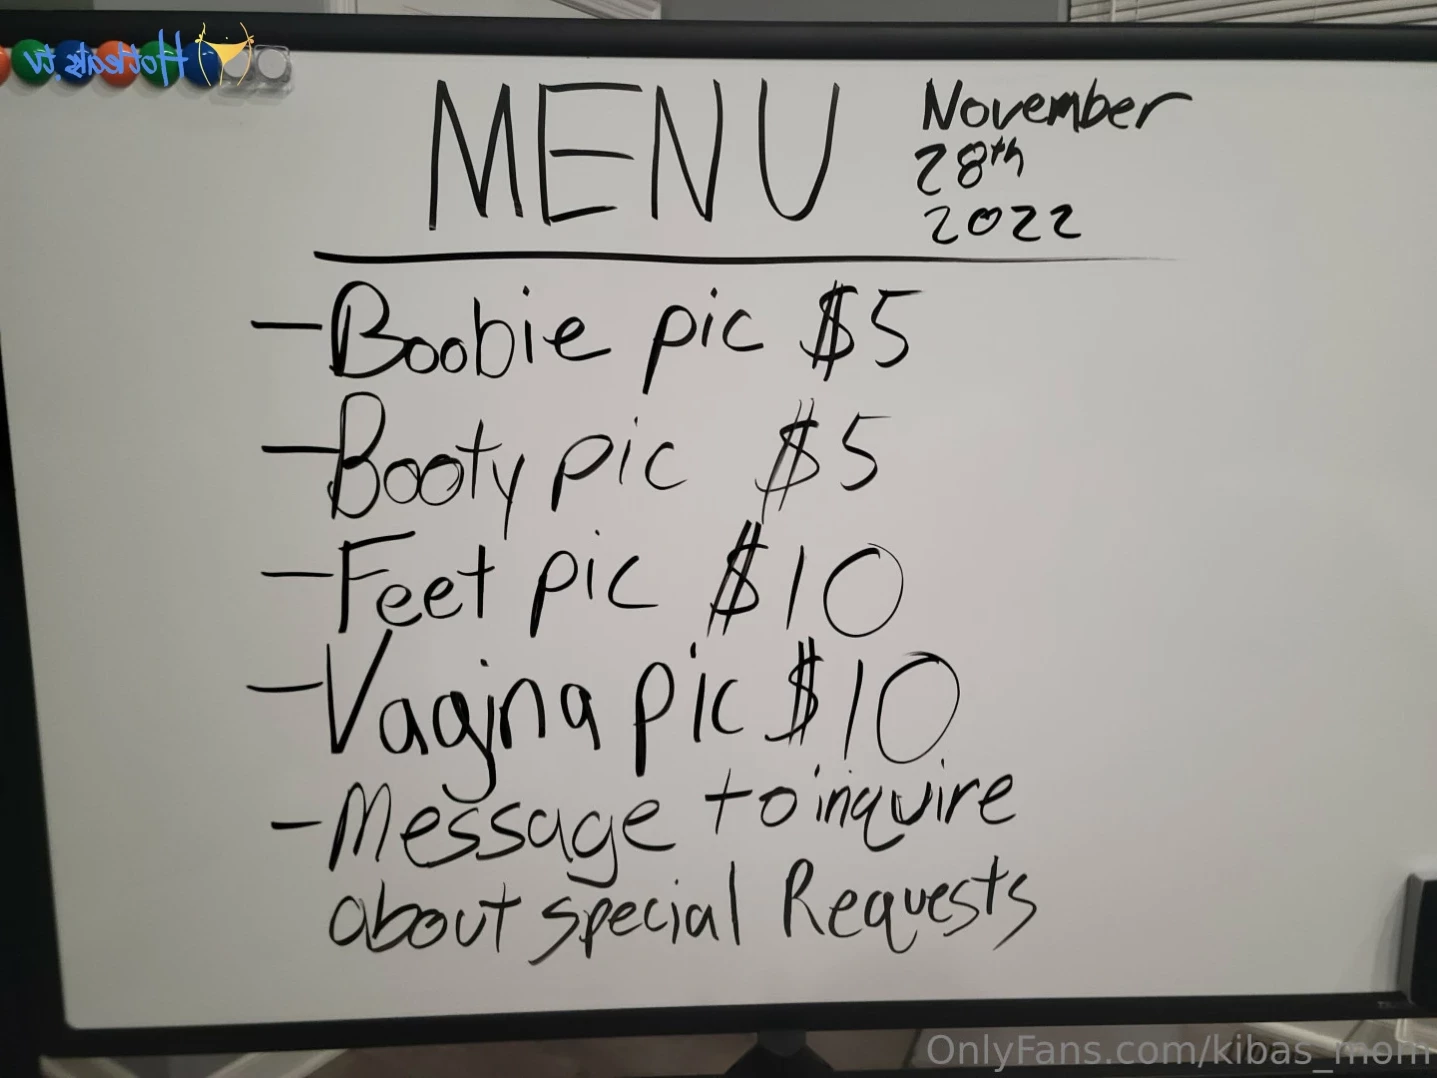 Hotkats.tv
MENU
November
28th
2022
-Boobie pic $5
-Booty pic $5
-Feet pic $10
-Vagina pic $10
-Message to inquire
about special Requests
OnlyFans.com/kibas_mom